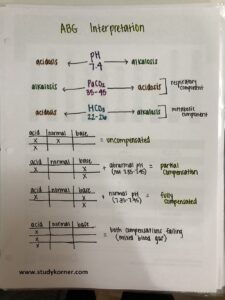 ABG Interpretation
PH
acidosis ← 7.4 → alkalosis
alkalosis ← PaCO2 → acidosis } respiratory component
35-45
acidosis ← HCO3 → alkalosis } metabolic component
22-26
acid normal base
x x = uncompensated
x
acid normal base
x + abnormal pH = partial
x (not 7.35-7.45) compensation
acid normal base
x + normal pH = fully
x (7.35-7.45) compensated
acid normal base
x = both compensations failing
x (mixed blood gas)
www.studykorner.com